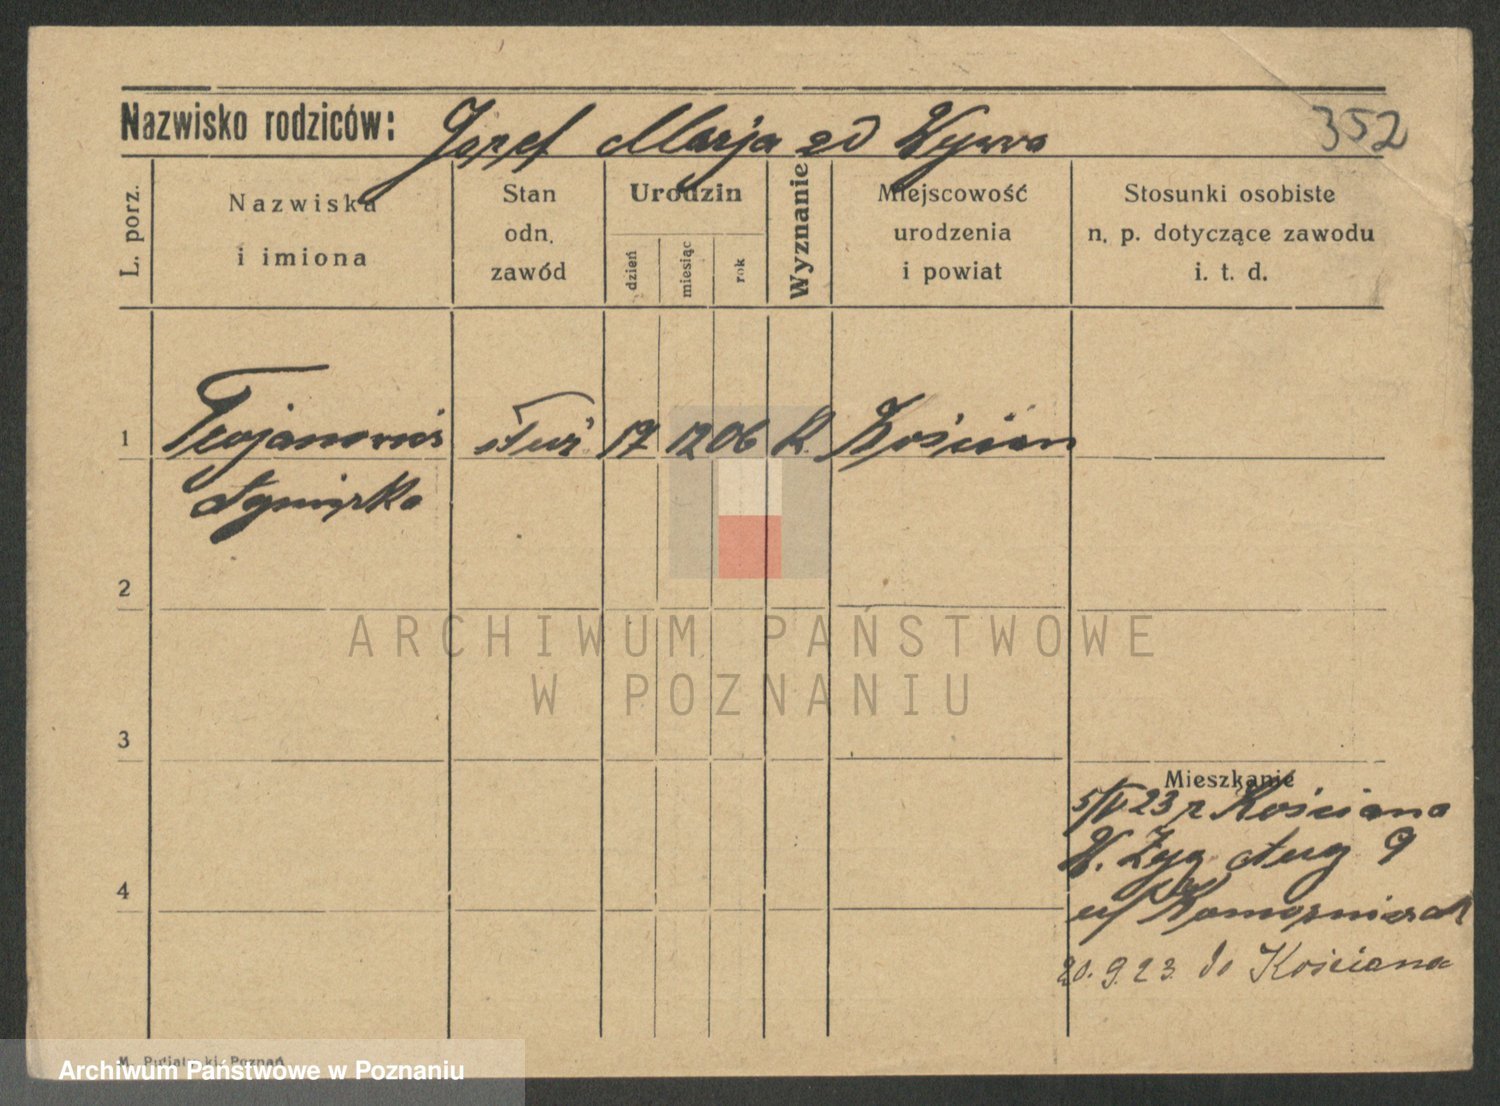 352
Nazwisko rodziców: Józef Marja zd Wywra
L. porz.
Nazwiska
i imiona
Stan
odn.
zawód
Urodzin
dzień
miesiąc
rok
Wyznanie
Miejscowość
urodzenia
i powiat
Stosunki osobiste
n. p. dotyczące zawodu
i. t. d.
1 Trojanowicz służ 17 12 06 k. Kościan
Agnieszka
2
ARCHIWUM PAŃSTWOWE
W POZNANIU
3
Mieszkanie
5/V 23 z Kościana
W. Zyg Aug 9
4
u/
20.9.23. do Kościana
Poznań
Archiwum Państwowe w Poznaniu